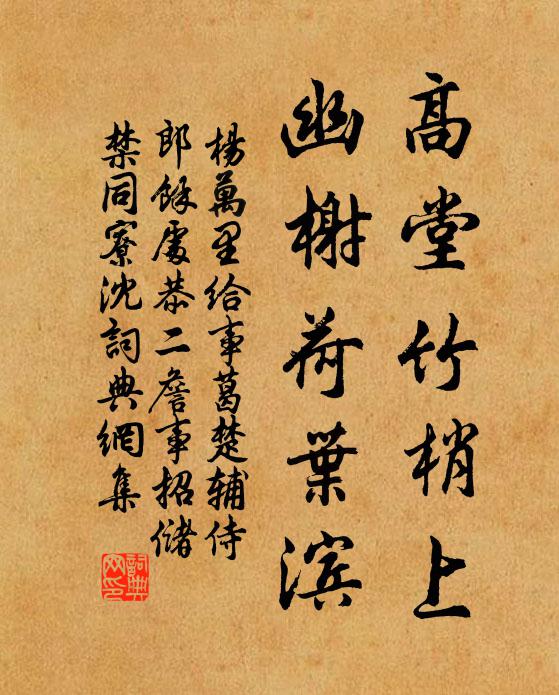 高堂竹梢上
幽榭荷葉滨
楊萬里给事葛楚辅侍
郎餘處恭二詹事招储
禁同寮沈詞典網集
詞典網印